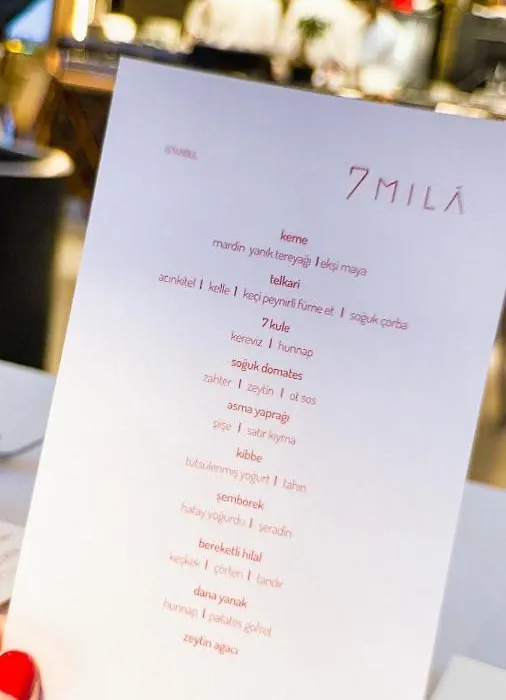 ISTANBUL
7MILÁ
keme
mardin yanık tereyağı | ekşi maya
telkari
acınkitel | kelle | keçi peynirli füme et | soğuk çorba
7 kule
kereviz | hunnap
soğuk domates
zahter | zeytin | ot sos
asma yaprağı
şişe | satır kıyma
kibbe
tütsülenmiş yoğurt | tahin
şemborek
hatay yoğurdu | şeradin
bereketli hilal
keşkek | çörten | tandır
dana yanak
hunnap | patates gofret
zeytin agacı